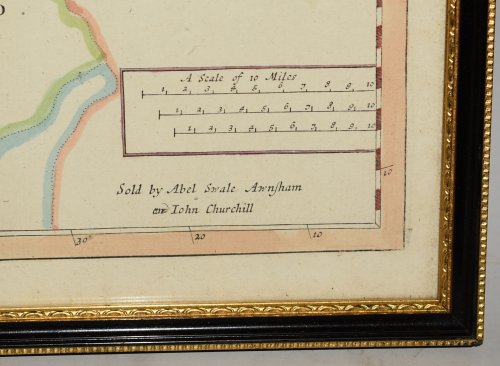 A Scale of 10 Miles
1 2 3 4 5 6 7 8 9 10
1 2 3 4 5 6 7 8 9 10
1 2 3 4 5 6 7 8 9 10
Sold by Abel Swale Awnsham
and Iohn Churchill
10
30 20 10